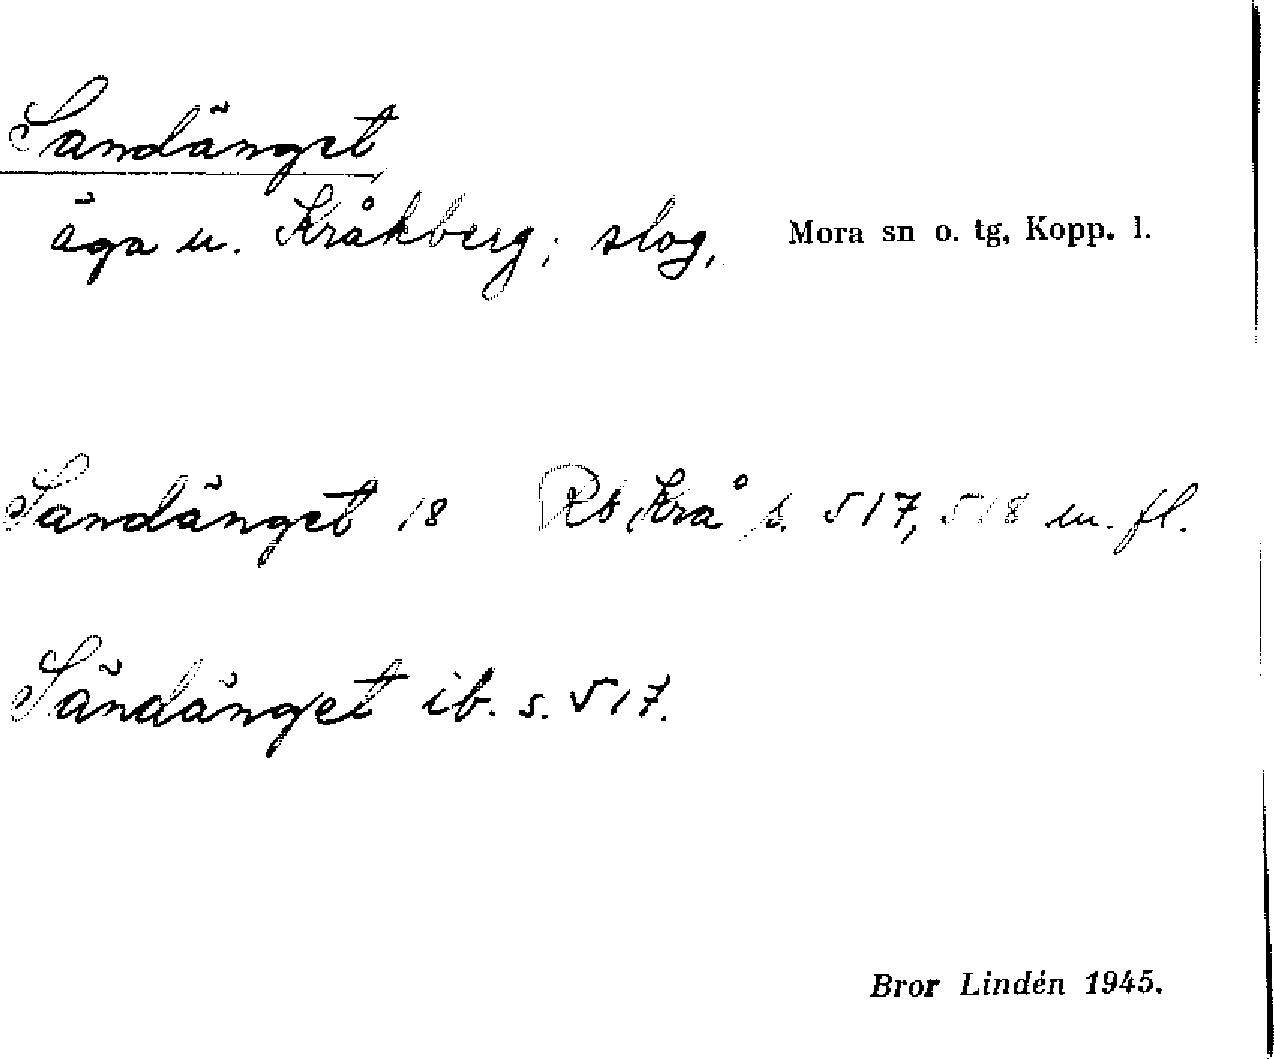 Sandänget
äga u. Kråkberg; slog, Mora sn o. tg, Kopp. l.
Sandänget 18 Rs Krå s. 517, 518 m. fl.
Sändänget ib. s. 517.
Bror Lindén 1945.